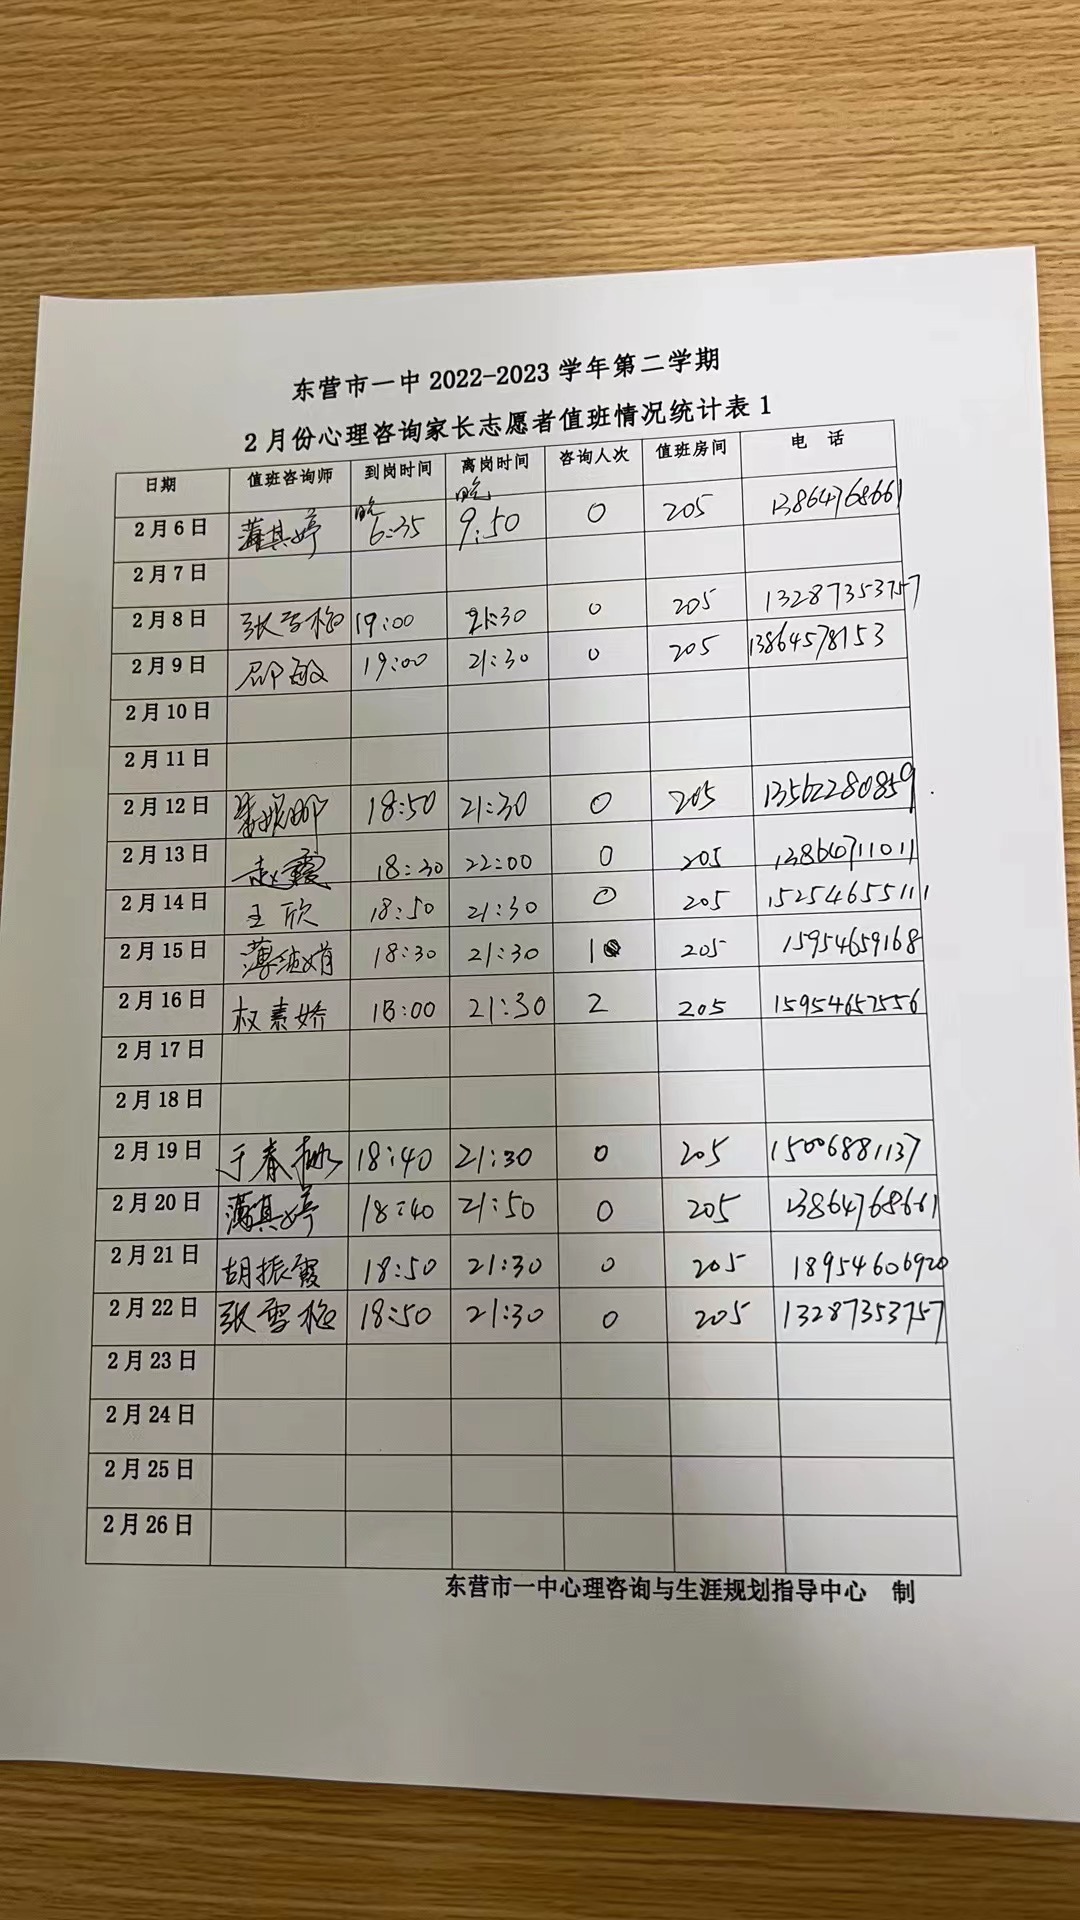 东营市一中 2022-2023 学年第二学期
2 月份心理咨询家长志愿者值班情况统计表 1
日期 值班咨询师 到岗时间 离岗时间 咨询人次 值班房间 电 话
2 月 6 日 薄其婷 晚6:35 晚9:50 0 205 13864768661
2 月 7 日
2 月 8 日 张雪梅 19:00 21:30 0 205 13287353757
2 月 9 日 邵敏 19:00 21:30 0 205 13864578153
2 月 10 日
2 月 11 日
2 月 12 日 18:50 21:30 0 205 13562280859
2 月 13 日 赵霞 18:30 22:00 0 205 13864711011
2 月 14 日 王欣 18:50 21:30 0 205 15254655111
2 月 15 日 薄娟 18:30 21:30 1 205 15954659168
2 月 16 日 权素娇 18:00 21:30 2 205 15954657556
2 月 17 日
2 月 18 日
2 月 19 日 于春 18:40 21:30 0 205 15006881137
2 月 20 日 薄其婷 18:40 21:50 0 205 13864768661
2 月 21 日 胡振霞 18:50 21:30 0 205 18954606920
2 月 22 日 张雪梅 18:50 21:30 0 205 13287353757
2 月 23 日
2 月 24 日
2 月 25 日
2 月 26 日
东营市一中心理咨询与生涯规划指导中心 制